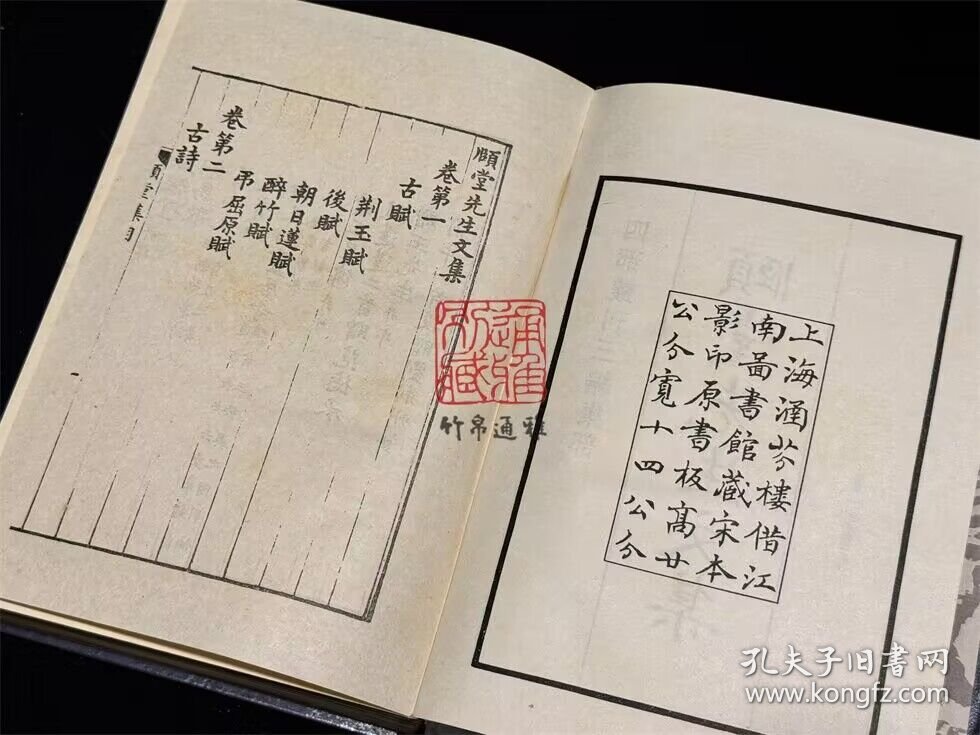 上海涵芬樓借江
南啚書館藏宋本
影印原書板高廿
公分寬十四公分
頤堂先生文集
卷第一
古賦
荆玉賦
後賦
朝日蓮賦
醉竹賦
弔屈原賦
卷第二
古詩
頤堂集目
竹帛通雅
孔夫子旧书网
www.kongfz.com